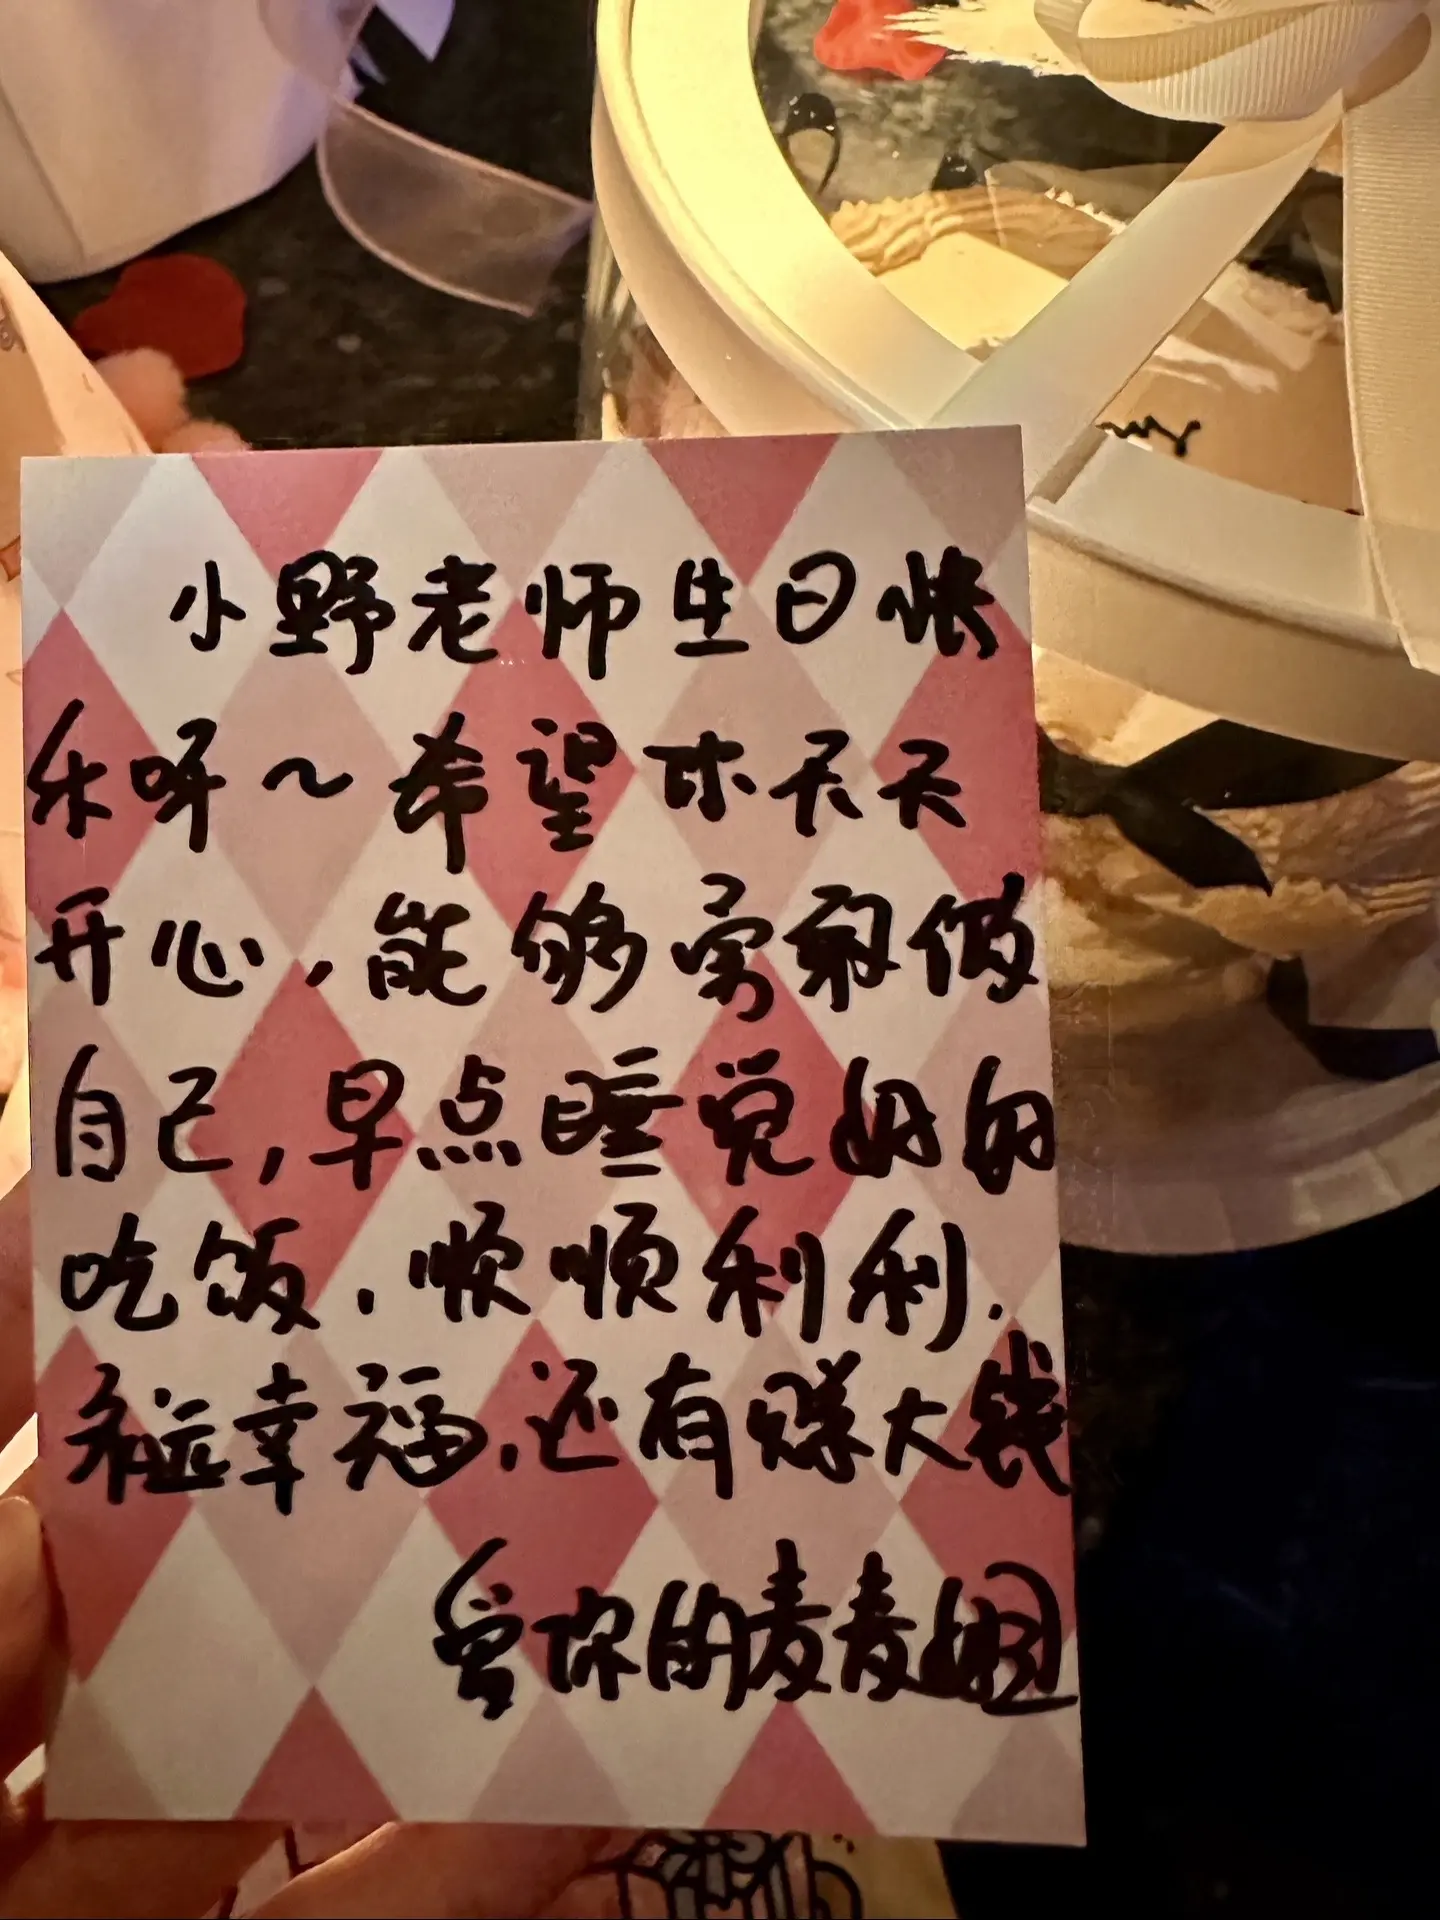 小野老师生日快
乐呀～希望你天天
开心,能够勇敢做
自己,早点睡觉好好
吃饭.顺顺利利.
幸福.还有赚大钱
爱你的麦麦